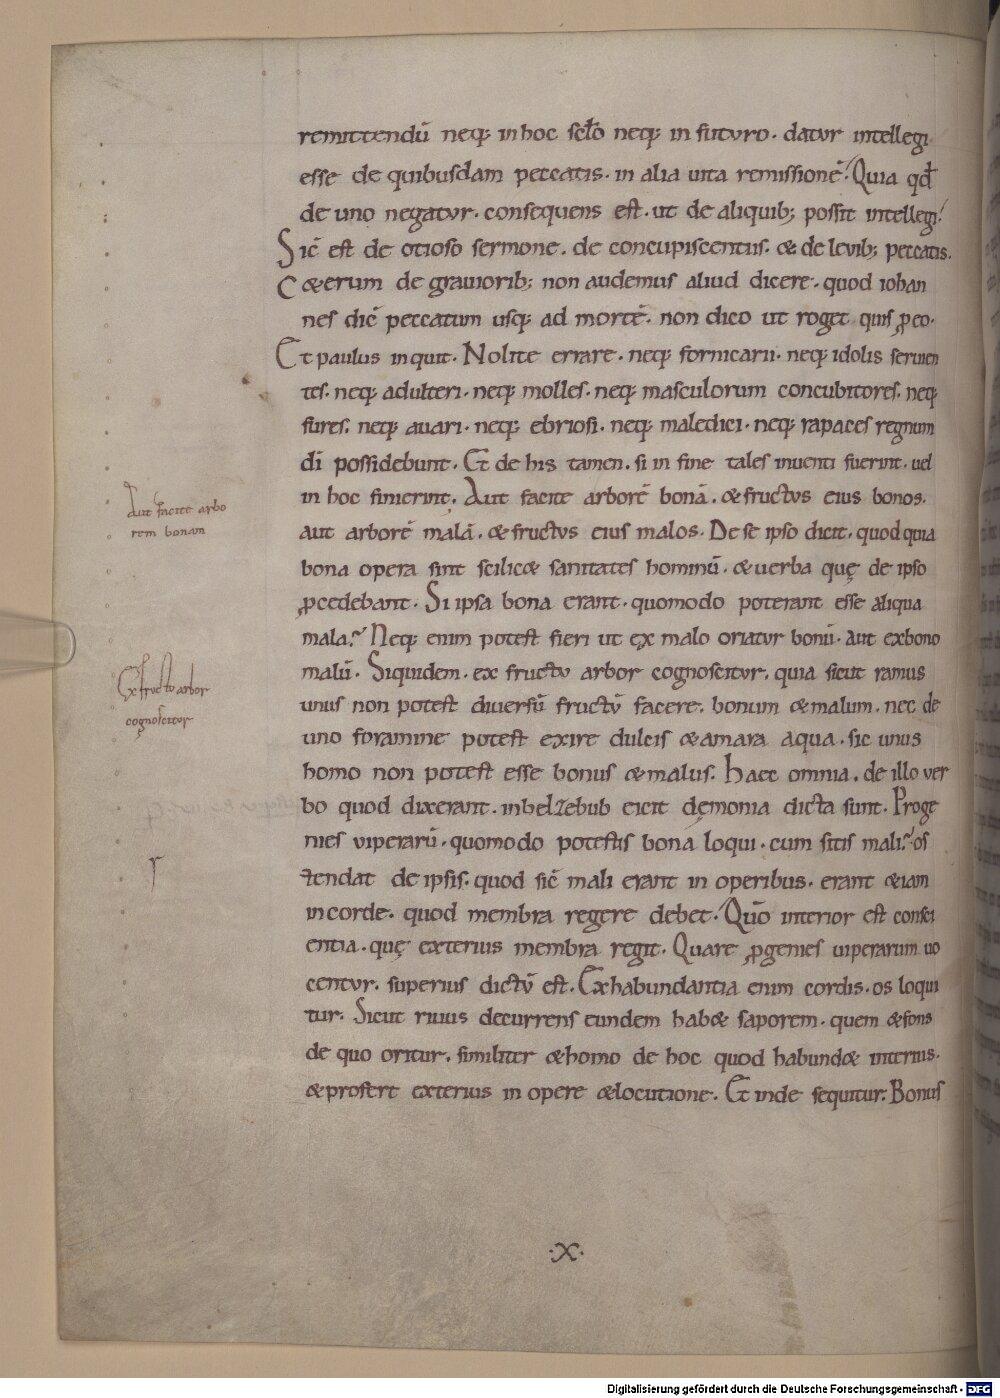 remittendū neq; in hoc sc̅lo neq; in futuro. datur intellegi
esse de quibusdam peccatis. in alia uita remissionē. Quia qđ
de uno negatur. consequens est. ut de aliquib; possit intellegi.
Sic̄ est de otioso sermone. de concupiscentiis. & de leuib; peccatis.
C&erum de grauiorib; non audemus aliud dicere. quod iohan
nes dic̄ peccatum usq; ad mortē. non dico ut roget quis ꝓ eo.
Et paulus inquit. Nolite errare. neq; fornicarii. neq; idolis seruien
tes. neq; adulteri. neq; molles. neq; masculorum concubitores. neq;
fures. neq; auari. neq; ebriosi. neq; maledici. neq; rapaces regnum
dī possidebunt. Et de his tamen. si in fine tales inuenti fuerint. uel
in hoc finierint. Aut facite arborē bonā. & fructus eius bonos.
aut arborē malā. & fructus eius malos. De se ipso dicit. quod quia
bona opera sunt scilic& sanitates hominū. & uerba quę de ipso
ꝓcedebant. Si ipsa bona erant. quomodo poterant esse aliqua
mala? Neq; enim potest fieri ut ex malo oriatur bonū. aut ex bono
malū. Siquidem. ex fructu arbor cognoscitur. quia sicut ramus
unus non potest diuersū fructū facere. bonum & malum. nec de
uno foramine potest exire dulcis & amara aqua. sic unus
homo non potest esse bonus & malus. Haec omnia. de illo ver
bo quod dixerant. in belzebub eicit dęmonia dicta sunt. Proge
nies viperarū. quomodo potestis bona loqui. cum sitis mali? os
tendat de ipsis. quod sic̄ mali erant in operibus. erant &iam
in corde. quod membra regere debet. Quō interior est consci
entia. quę exterius membra regit. Quare ꝓgenies uiperarum uo
centur. superius dictū est. Ex habundantia enim cordis. os loqui
tur. Sicut riuus decurrens eundem hab& saporem. quem & fons
de quo oritur. similiter & homo de hoc quod habund& interius.
& profert exterius in opere & locutione. Et inde sequitur. Bonus
Aut facite arbo
rem bonam
Ex fructu arbor
cognoscitur
r
.X.
Digitalisierung gefördert durch die Deutsche Forschungsgemeinschaft - DFG